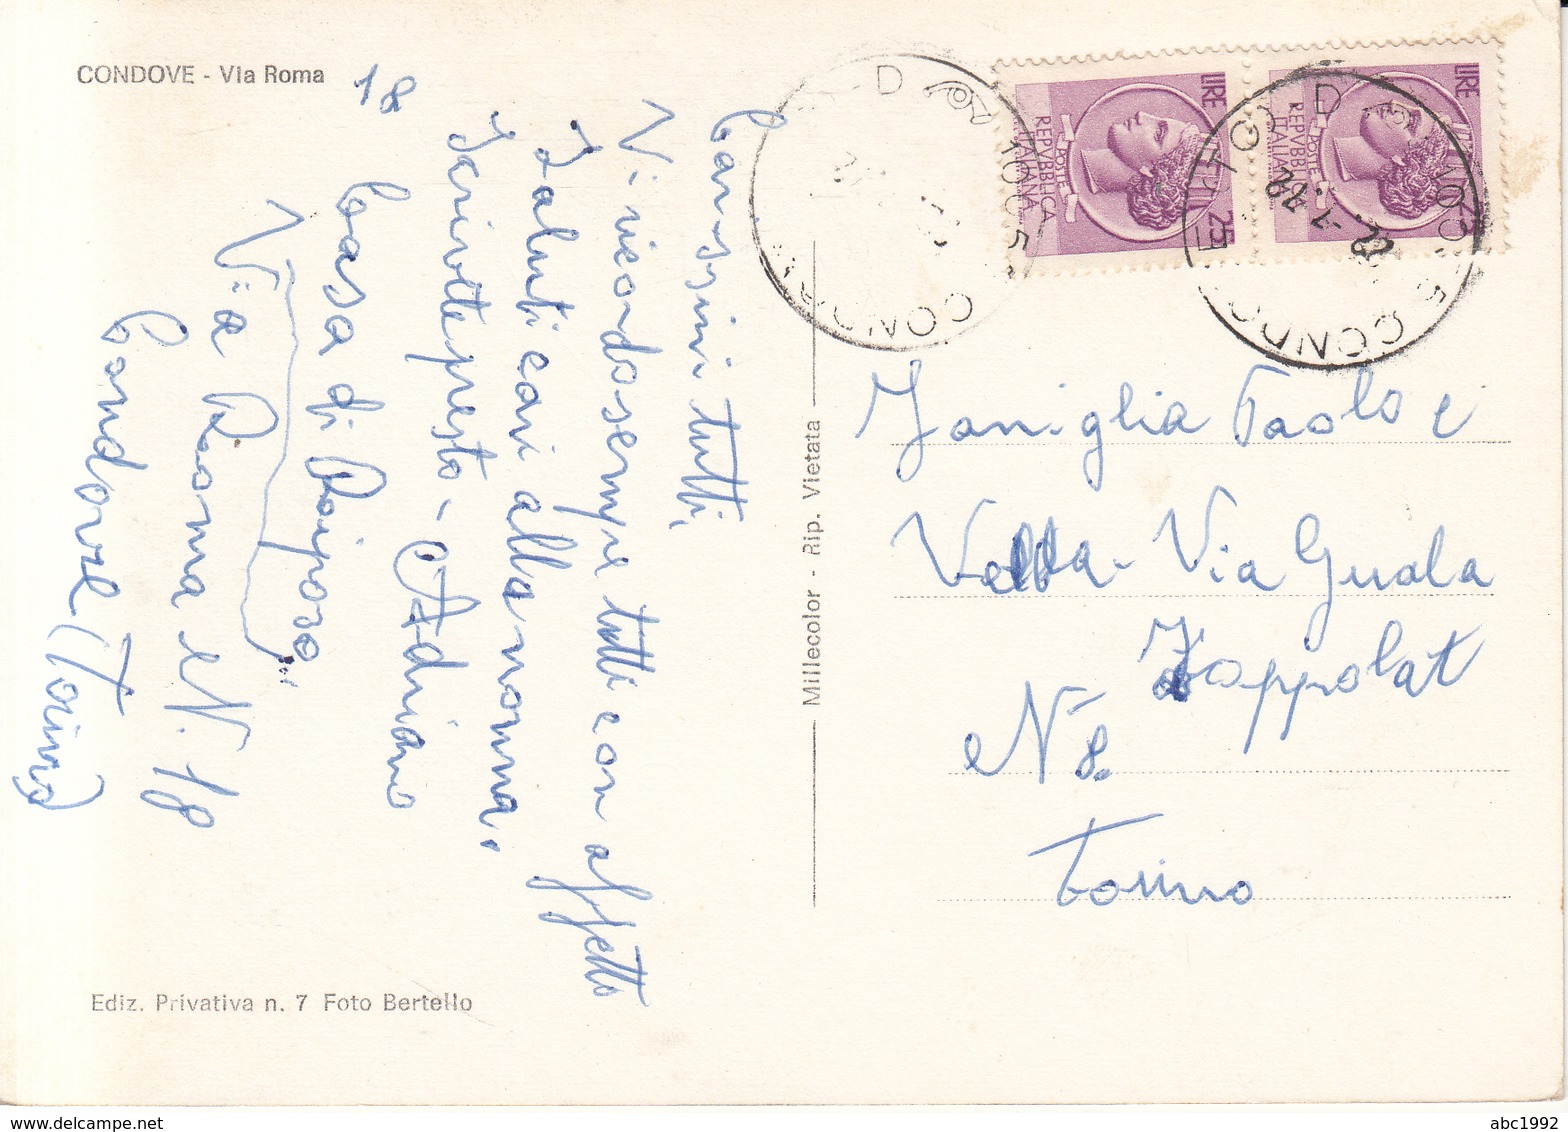 CONDOVE - Via Roma
18
Carissimi tutti,
Vi ricordo sempre tutti con affetto
Saluti cari alla nonna.
Scrivete presto - Adriano
Casa di Riposo
Via Roma N. 18
Condove (Torino)
Ediz. Privativa n. 7 Foto Bertello
Millecolor - Rip. Vietata
LIRE 25
REPVBBLICA ITALIANA
POSTE
LIRE 25
REPVBBLICA ITALIANA
POSTE
CONDOVE
10055 CONDOVE
22.-7.72
Famiglia Paolo e
Velda - Via Guala
N° 8.
Torino
abc1992